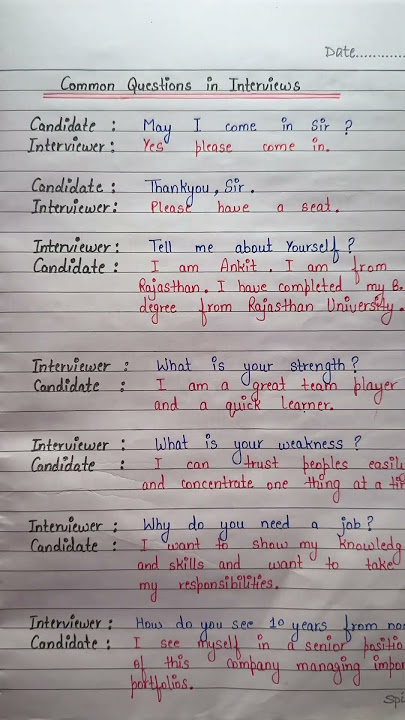 Date............
Common Questions in Interviews
Candidate : May I come in Sir ?
Interviewer : Yes please come in.
Candidate : Thankyou, Sir.
Interviewer : Please have a seat.
Interviewer : Tell me about Yourself ?
Candidate : I am Ankit. I am from
Rajasthan. I have completed my B.
degree from Rajasthan University.
Interviewer : What is your strength ?
Candidate : I am a great team player
and a quick learner.
Interviewer : What is your weakness ?
Candidate : I can trust peoples easil
and concentrate one thing at a ti
Interviewer : Why do you need a job ?
Candidate : I want to show my knowledg
and skills and want to take
my responsibilities.
Interviewer : How do you see 10 years from no
Candidate : I see myself in a senior positio
of this company managing impor
portfolios.
Spi